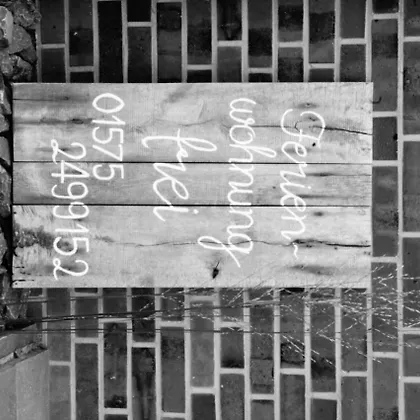 Ferien-
wohnung
frei
01575
2499152